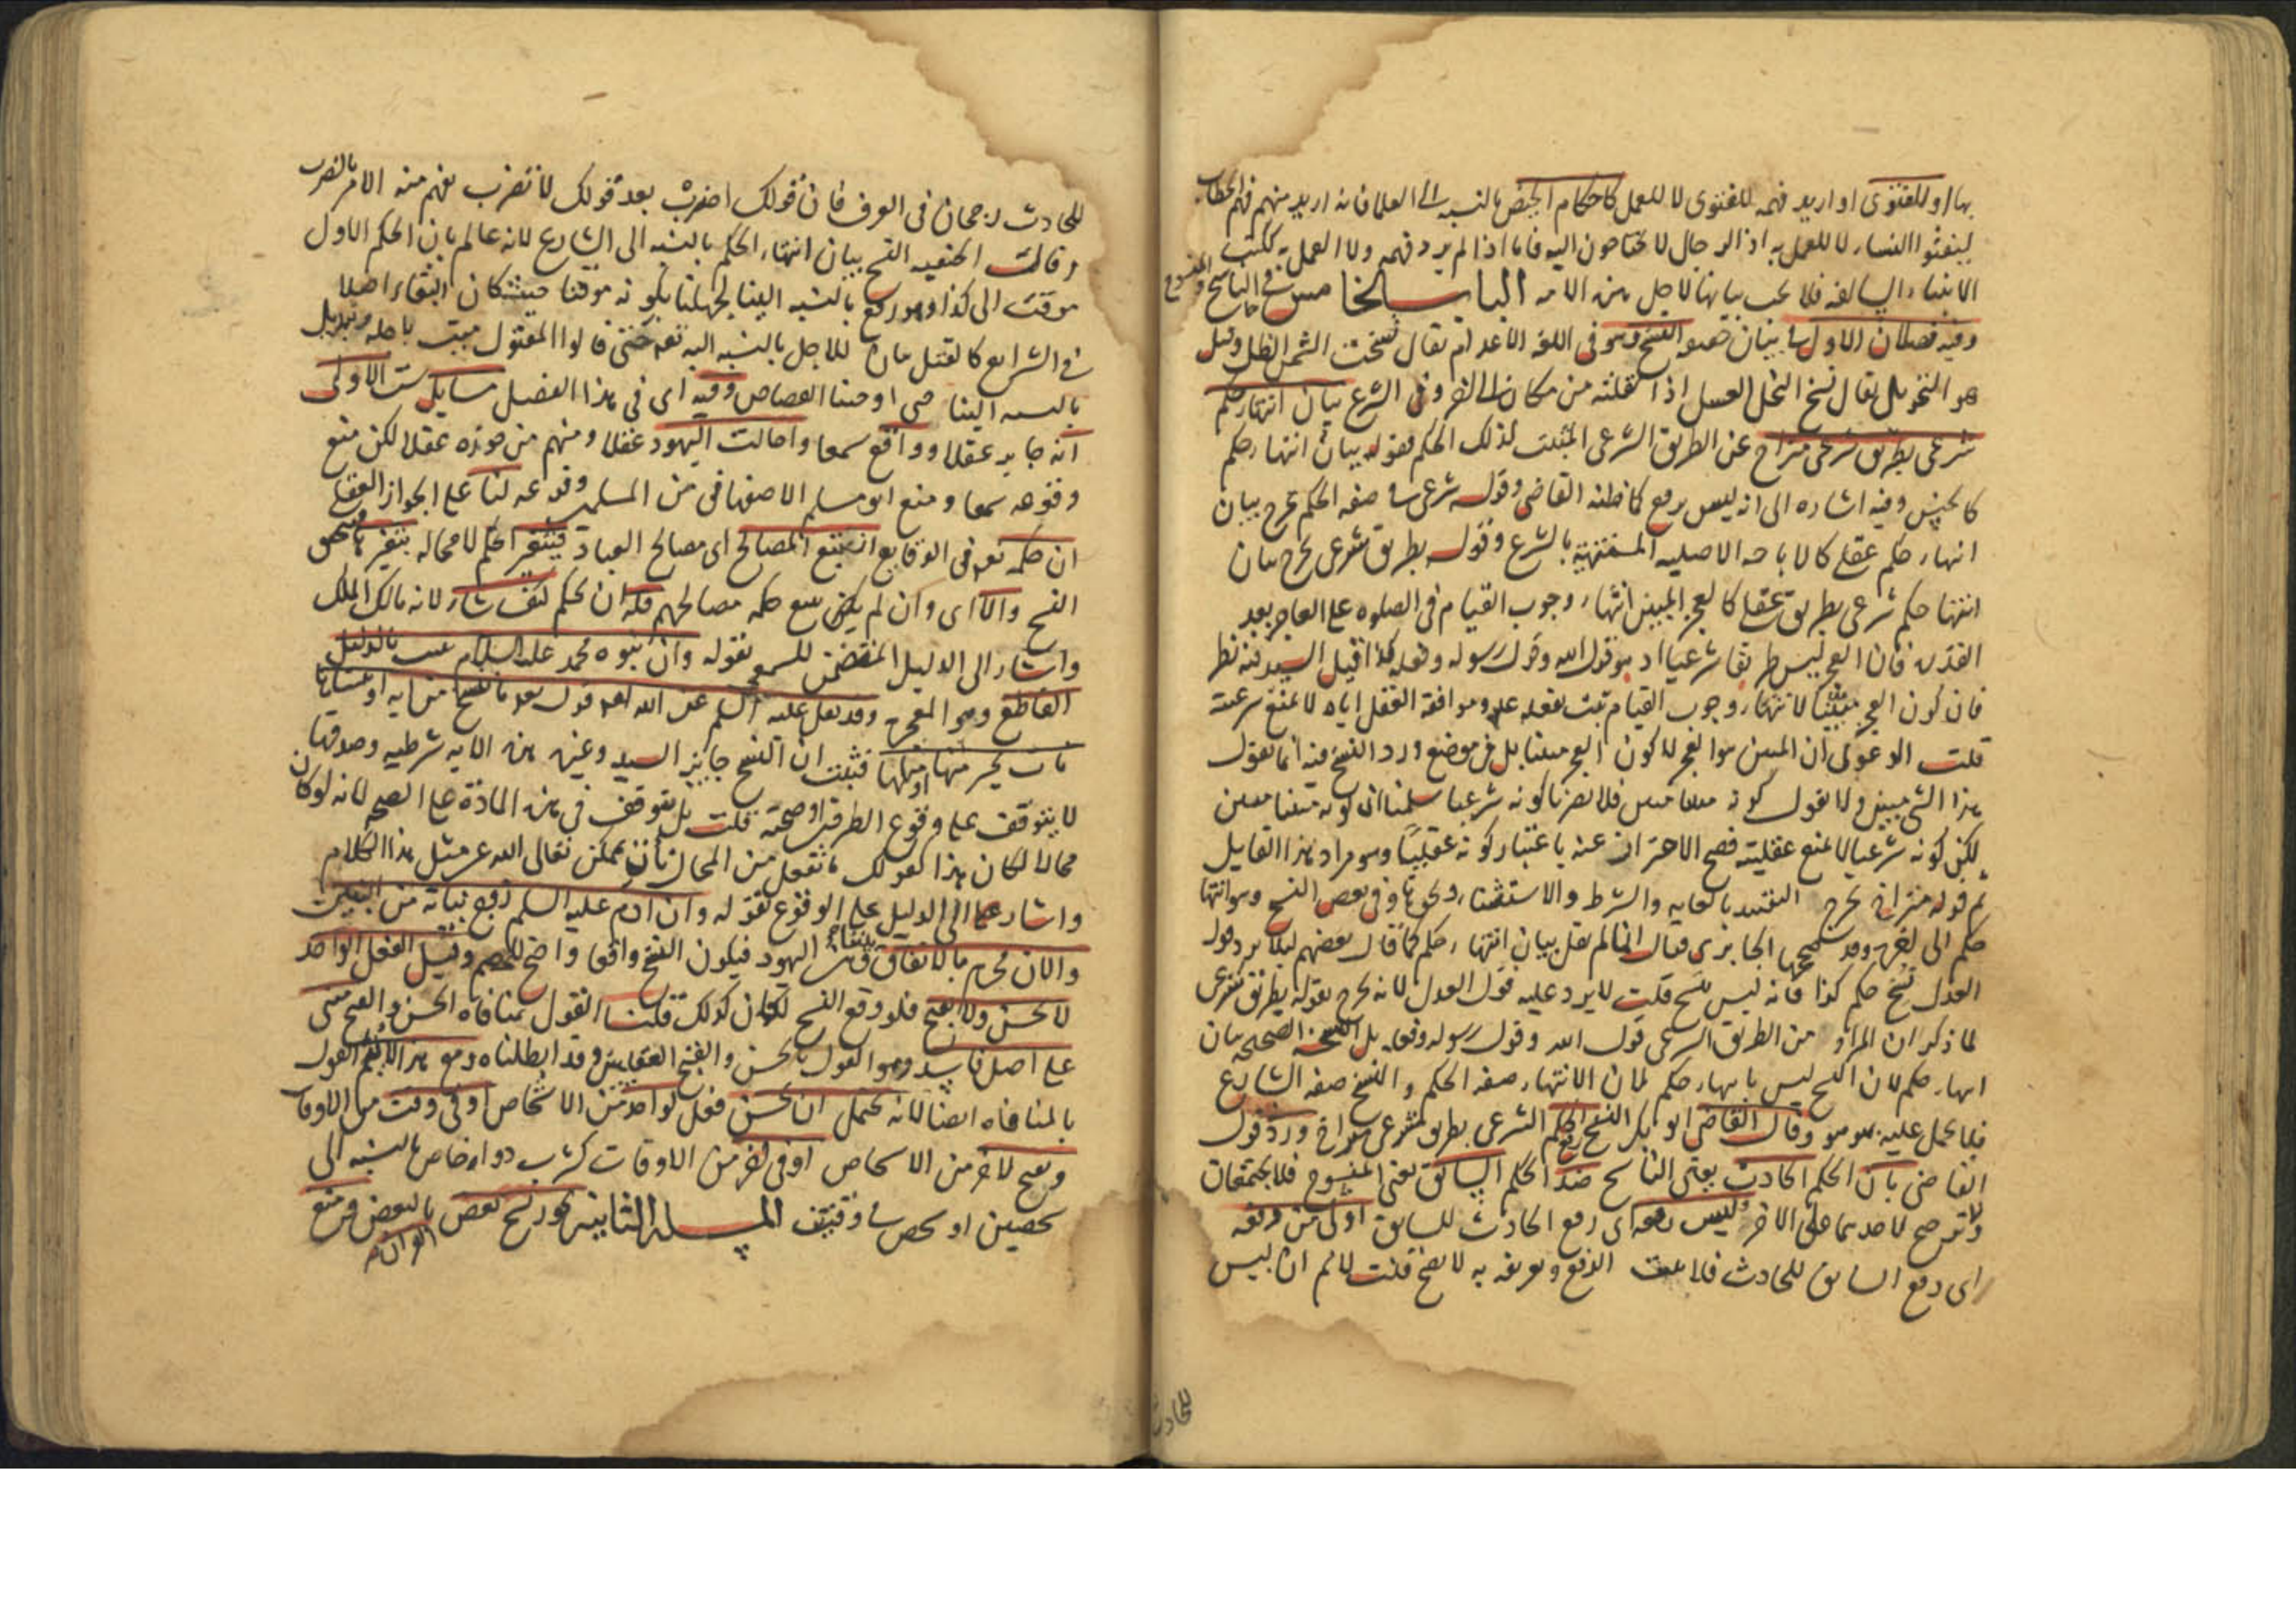 بها او للفتوى او اريد فهمه للفتوى لا للعمل كاحكام الحيض بالنسبه الى العلما فانه اريد منهم فهم الخطاب
ليفتوا النساء لا للعمل به اذ الرجال لا يحتاجون اليه فاما اذا لم يرد فهمه ولا العمل به ككتب
الانبياء السالفه فلا يجب بيانها لاجل هذه الامه الباب الخامس في الناسخ والمنسوخ
وفيه فصلان الاول في بيان النسخ وهو في اللغه الاعدام يقال نسخت الشمس الظل وقيل
هو التحويل يقال نسخ النحل العسل اذا نقلته من مكان الى اخر وفى الشرع بيان انتهاء حكم
شرعى بطريق شرعى متراخ عن الطريق الشرعى المثبت لذلك الحكم فقوله بيان انتهاء حكم
كالجنس وفيه اشاره الى انه ليس برفع كما ظنه القاضى وقوله شرعى صفه الحكم يخرج بيان
انتهاء حكم عقلى كالاباحه الاصليه المنتهية بالشرع وقوله بطريق شرعى يخرج بيان
انتهاء حكم شرعى بطريق عقلى كالعجز المبين انتهاء وجوب القيام فى الصلوه على العاجز بعد
القدره فان العجز ليس طريقا شرعيا اذ هو قول الله وقول رسوله وفعله كذا قيل السيد فيه نظر
فان كون العجز مبينا لانتهاء وجوب القيام ثبت بفعله عم وموافقة العقل اياه لا يمنع شرعيته
قلت الدعوى ان المبين هو العجز لا كون العجز مبينا بل فى موضع ورد النسخ فيه انما يقول
هذا الشى مبين ولا يقول كونه مبينا مبين فلا يضرنا كونه شرعيا سلمنا ان كونه مبينا مبين
لكن كونه شرعيا لا يمنع عقليته فصح الاحتراز عنه باعتبار كونه عقليا وهو مراد هذا القايل
ثم قوله متراخ يخرج التقييد بالغايه والشرط والاستثناء ونحوها وفى بعض النسخ وهو انتهاء
حكم الى اخره وقد صححها الجابردى فقال انما لم يقل بيان انتهاء حكم كما قال بعضهم ليلا يرد قول
العدل نسخ حكم كذا فانه ليس بنسخ قلت لا يرد عليه قول العدل لانه يخرج بقوله بطريق شرعى
لما ذكر ان المراد من الطريق الشرعى قول الله وقول رسوله وفعله بل النسخه الصحيحه بيان
انتهاء حكم لان النسخ ليس بانتهاء حكم لان الانتهاء صفه الحكم والنسخ صفه الشارع
فلا يحمل عليه بهو هو وقال القاضى ابو بكر النسخ رفع الحكم الشرعى بطريق شرعى متراخ ورد قول
القاضى بان الحكم الحادث يعنى الناسخ ضد الحكم السابق يعنى المنسوخ فلا يجتمعان
ولا ترجيح لاحدهما على الاخر وليس رفعه اى رفع الحادث للسابق اولى من دفعه
اى دفع السابق للحادث فلا الرفع وتعريفه به لا يصح قلت لا نم ان ليس
للحادث
للحادث رجحان فى العرف فان قولك اضرب بعد قولك لا تضرب يفهم منه الامر بالضرب
وقالت الحنفيه النسخ بيان انتهاء الحكم بالنسبه الى الشارع لانه عالم بان الحكم الاول
موقت الى كذا وهو رفع بالنسبه الينا لجهلنا بكونه موقتا حيث كان البقاء اصلا
فى الشرايع كالقتل بيان للاجل بالنسبه اليه تعم حتى قالوا المقتول ميت باجله وتبديل
بالنسبه الينا حتى اوجبنا القصاص وفيه اى فى هذا الفصل مسايل ست الاولى
انه جايز عقلا وواقع سمعا واحالت اليهود عقلا ومنهم من جوزه عقلا لكن منع
وقوعه سمعا ومنع ابو مسلم الاصفهانى من المسلمين وقوعه لنا على الجواز العقلى
ان حكمه تعم فى الوقايع ان يتبع المصالح اى مصالح العباد فيتغير الحكم لا محاله بتغيرها فيصح
النسخ والا اى وان لم يكن يتبع حكمه مصالحهم فله ان يحكم كيف شاء لانه مالك الملك
واشار الى الدليل المتضمن للسمعى بقوله وان نبوه محمد عليه السلام ثبت بالدليل
القاطع وهو المعجزه وقد نقل عليه السلم عن الله تعم قوله تعم ما ننسخ من ايه او ننسها
نات بخير منها او مثلها فثبت ان النسخ جايز السيد وغيره هذه الايه شرطيه وصدقها
لا يتوقف على وقوع الطرفين او صحته قلت بل يتوقف فى هذه المادة على الصحه لانه لو كان
محالا لكان هذا كقولك ما نفعل من المحال نات بممكن تعالى الله عن مثل هذا الكلام
واشار الى الدليل على الوقوع بقوله وان ادم عليه السلم زوج بناته من البنين
والان محرم بالاتفاق اليهود فيكون النسخ واقعا واضح للخصم وقيل الفعل الواحد
لا يحسن ولا يقبح فلو وقع النسخ لكان كذلك قلنا القول بمنافاه الحسن والقبح مبنى
على اصل فاسد وهو القول بالحسن والقبح العقليين وقد ابطلناه ومع هذا لا يتم القول
بالمنافاه ايضا لانه يحتمل ان يحسن فعل لواحد من الاشخاص او فى وقت من الاوقات
ويقبح لاخر من الاشخاص او فى اخر من الاوقات كشرب دواء خاص بالنسبه الى
شخصين او شخص فى وقتين المسله الثانيه يجوز نسخ بعض القران بالبعض ومنع